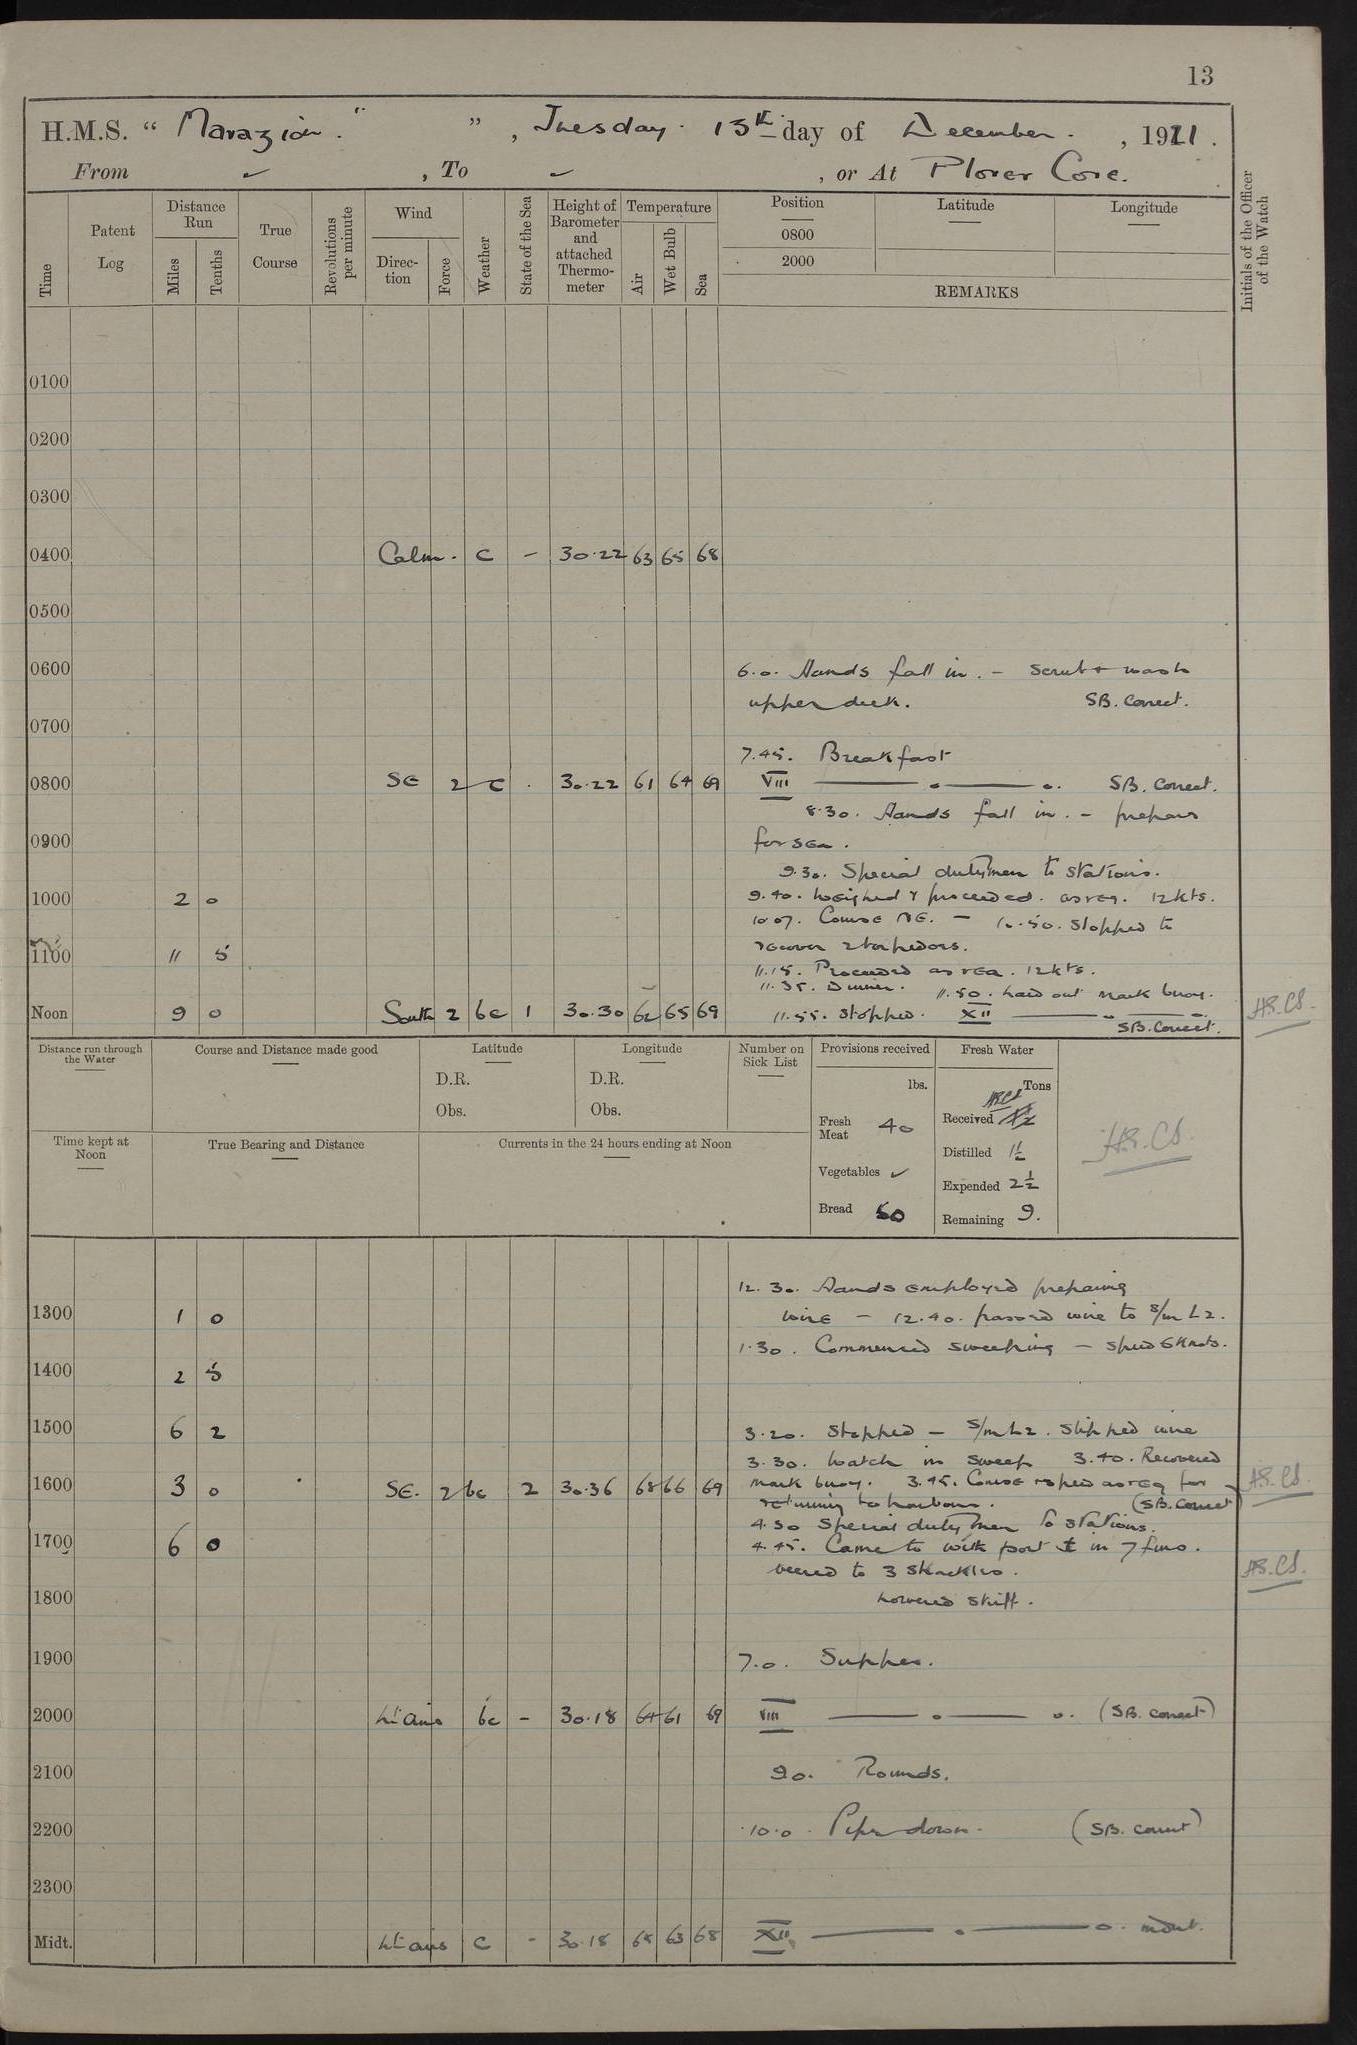 13
H.M.S. “ Marazion. ” , Tuesday. 13th day of December. , 1921.
From ✓ , To ✓ , or At Plover Cove.
Time
Patent Log
Distance Run
Miles
Tenths
True Course
Revolutions per minute
Wind
Direction
Force
Weather
State of the Sea
Height of Barometer and attached Thermometer
Temperature
Air
Wet Bulb
Sea
Position
0800
2000
Latitude
Longitude
REMARKS
Initials of the Officer of the Watch
0100
0200
0300
0400 Calm. c – 30.22 63 65 68
0500
0600 6.0. Hands fall in. – Scrub & wash
upper deck. SB. Correct.
0700
7.45. Breakfast
0800 SE 2 c . 30.22 61 64 69 VIII SB. Correct.
8.30. Hands fall in. – prepare
0900 for sea.
9.30. Special dutymen to stations.
1000 2 0 9.40. Weighed & proceeded. as req. 12kts.
10.07. Course NE. – 10.50. Stopped to
1100 11 5 recover 2 torpedoes.
11.15. Proceeded as req. 12kts.
11.35. Dinner. 11.50. Laid out mark buoy.
Noon 9 0 South 2 bc 1 30.30 62 65 69 11.55. Stopped. XII
SB. Correct.
H.S.CS.
Distance run through the Water
Course and Distance made good
Latitude
D.R.
Obs.
Longitude
D.R.
Obs.
Number on Sick List
Provisions received
lbs.
Fresh Meat 40
Vegetables ✓
Bread 50
Fresh Water
Tons
Received
Distilled 1½
Expended 2½
Remaining 9.
H.S.CS.
Time kept at Noon
True Bearing and Distance
Currents in the 24 hours ending at Noon
12.30. Hands employed preparing
1300 1 0 wire – 12.40. passed wire to S/m L2.
1.30. Commenced sweeping – speed 6 knots.
1400 2 5
1500 6 2 3.20. Stopped – S/m L2. Slipped wire
3.30. Watch in sweep 3.40. Recovered
1600 3 0 SE. 2 bc 2 30.36 68 66 69 mark buoy. 3.45. Course & speed as req for
returning to harbour. (SB. Correct)
H.S.CS.
4.30 Special duty men to stations.
1700 6 0 4.45. Came to with port ⚓ in 7 fms.
veered to 3 shackles.
H.S.CS.
1800 Lowered skiff.
1900 7.0. Supper.
2000 Lt airs bc – 30.18 64 61 69 VIII (SB. correct)
2100 9.0. Rounds.
2200 10.0. Pipe down. (SB. correct)
2300
Midt. Lt airs c – 30.18 65 63 68 XII mdnt.